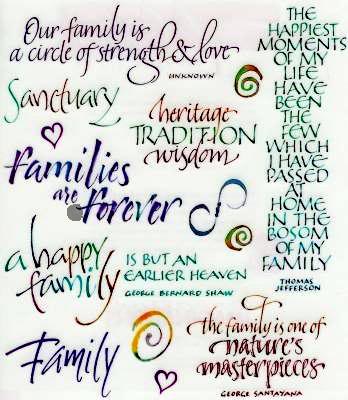 Our family is
a circle of strength & love
UNKNOWN
Sanctuary
heritage
TRADITION
wisdom
families
are forever
a happy
family
IS BUT AN
EARLIER HEAVEN
GEORGE BERNARD SHAW
Family
the family is one of
nature's
masterpieces
GEORGE SANTAYANA
THE
HAPPIEST
MOMENTS
OF MY
LIFE
HAVE
BEEN
THE
FEW
WHICH
I HAVE
PASSED
AT
HOME
IN THE
BOSOM
OF MY
FAMILY
THOMAS
JEFFERSON